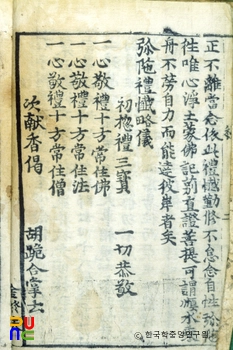 正不離當念依此禮懺勤修不怠念自性
徃唯心淨土裝佛記莂直證菩提可謂順水
舟不勞自力而能達彼岸者矣
弥陁禮懺略儀
初捴禮三寶 一切恭敬
一心敬禮十方常住佛
一心敬禮十方常住法
一心敬禮十方常住僧
次献香偈 胡跪合掌云
한국학중앙연구원